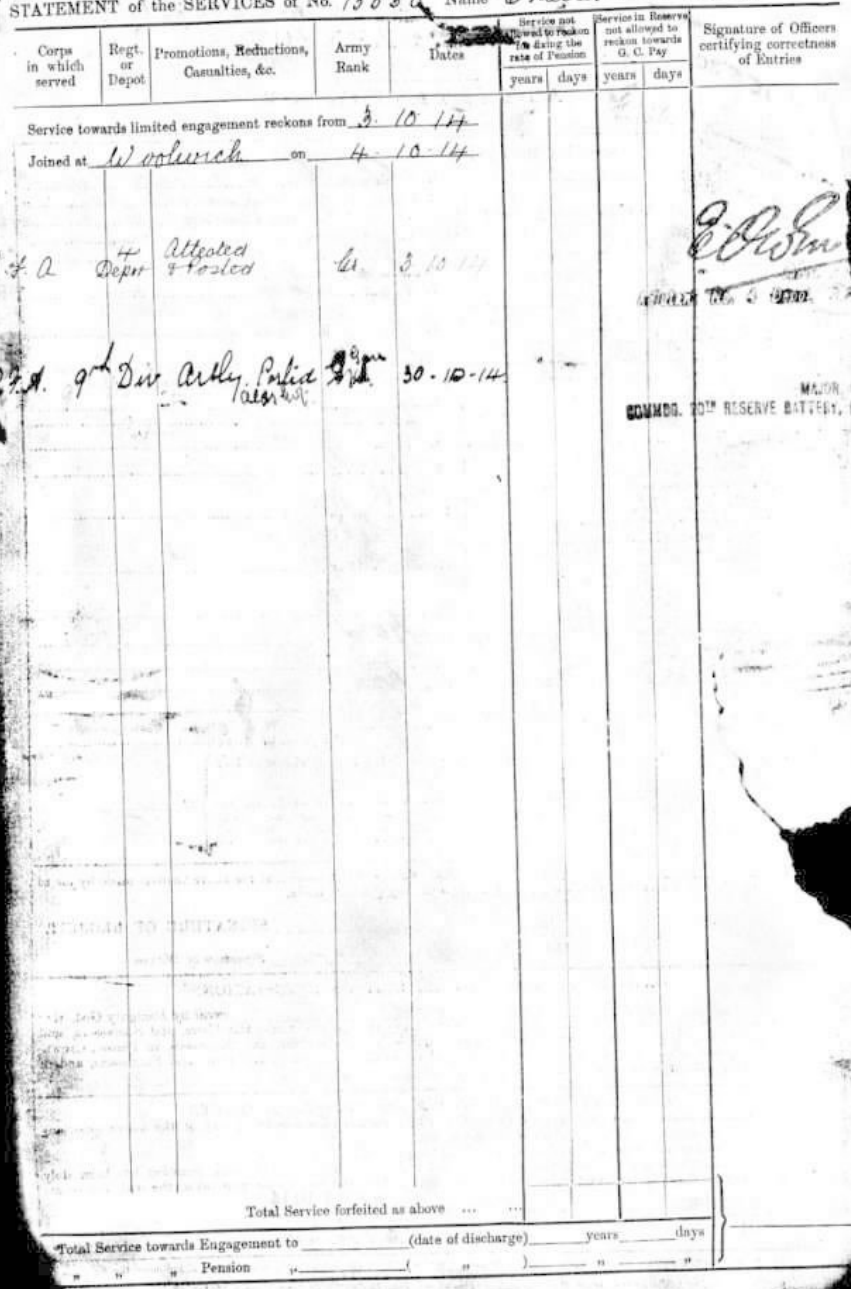 STATEMENT of the SERVICES of No. Name
Corps in which served
Regt. or Depot
Promotions, Reductions, Casualties, &c.
Army Rank
Dates
Service not allowed to reckon for fixing the rate of Pension
years days
Service in Reserve not allowed to reckon towards G. C. Pay
years days
Signature of Officers certifying correctness of Entries
Service towards limited engagement reckons from 3. 10 14
Joined at Woolwich on 4-10-14
F. A 4 Depot Attested & Posted 3 10 14
F. A. 9th Div. Artly. Posted 30-10-14
MAJOR,
COMMDG. 20TH RESERVE BATTERY,
Total Service forfeited as above ... ...
Total Service towards Engagement to (date of discharge) years days
" " " Pension " ( " ) " "